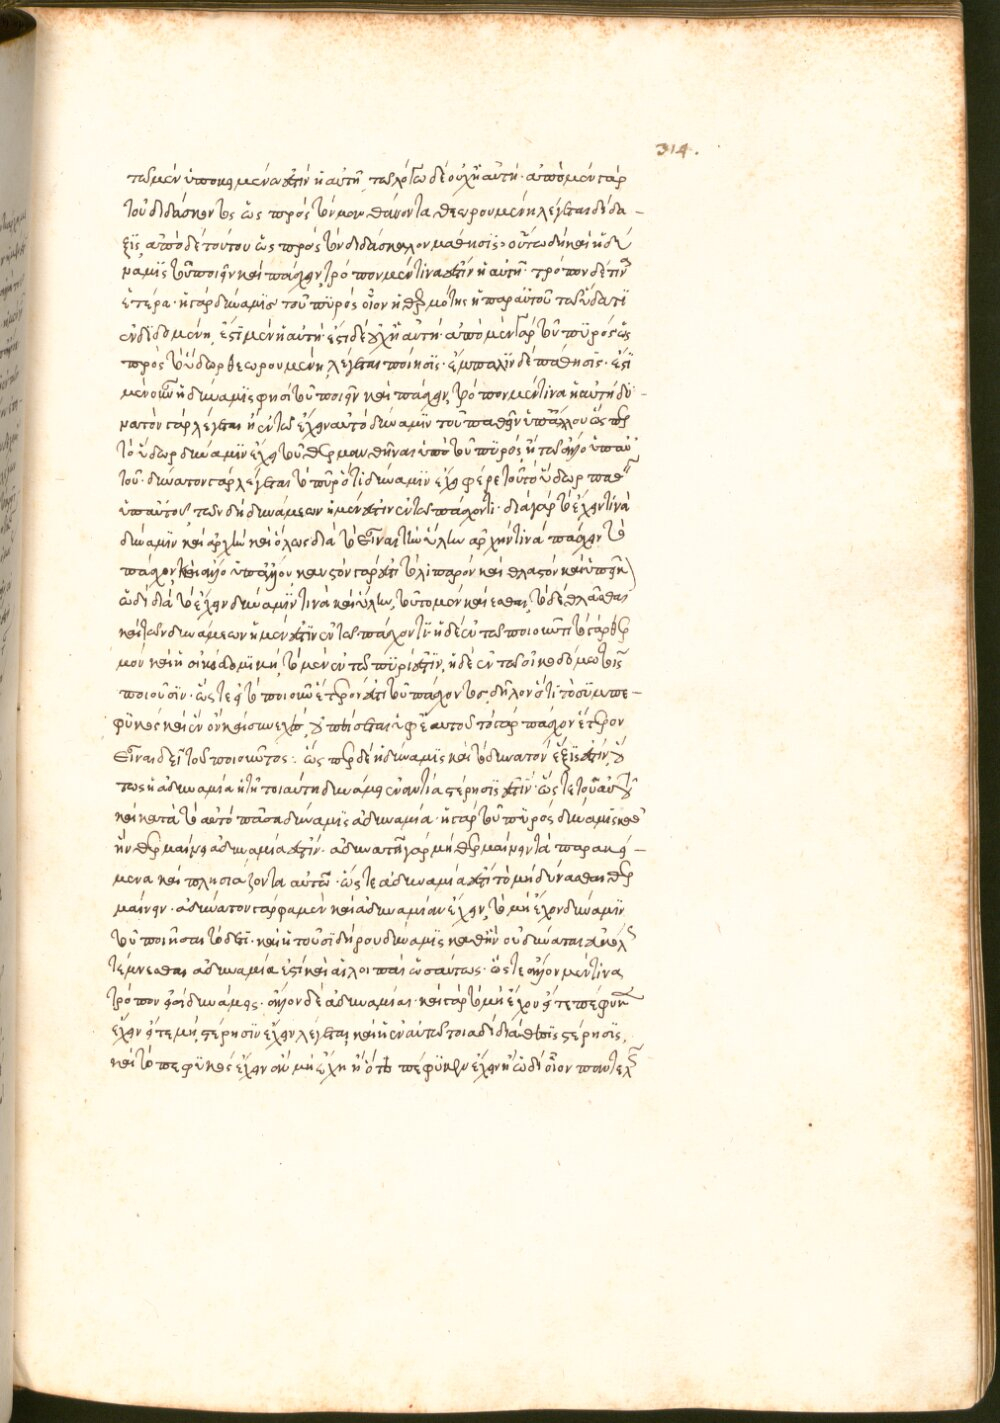 314.
τῶ μὲν ὑποκειμένω ἐστὶν ἡ αὐτὴ, τῶ λόγω δὲ οὐχ ἡ αὐτή· ἀπὸ μὲν γὰρ
τοῦ διδάσκοντος ὡς πρὸς τὸν μανθάνοντα θεωρουμένη λέγεται δίδα-
ξις ἀπὸ δὲ τούτου ὡς πρὸς τὸν διδάσκαλον μάθησις· οὕτω δὴ καὶ ἡ δύ
ναμις τοῦ ποιεῖν καὶ πάσχειν τρόπον μέν τινα ἐστὶν ἡ αὐτὴ· τρόπον δέ τινα
ἑτέρα· ἡ γὰρ δύναμις τοῦ πυρὸς οἷον ἡ θερμότης ἡ παρ αὐτοῦ τῶ ὕδατι
ἐνδιδομένη ἐστὶ μὲν ἡ αὐτή· ἐστὶ δὲ οὐχ ἡ αὐτή· ἀπὸ μὲν γὰρ τοῦ πυρὸς ὡς
πρὸς τὸ ὕδωρ θεωρουμένη λέγεται ποίησις· ἔμπαλιν δὲ πάθησις· ἔστι
μὲν οὖν ἡ δύναμις φησὶ τοῦ ποιεῖν καὶ πάσχειν, τρόπον μέν τινα ἡ αὐτὴ δυ-
νατὸν γὰρ λέγεται ἢ ἐν τῶ ἔχειν αὐτὸ δύναμιν τοῦ παθεῖν ὑπ ἄλλου ὥσπερ
τὸ ὕδωρ δύναμιν ἔχει τοῦ θερμανθῆναι ὑπὸ τοῦ πυρὸς, ἢ τῶ ἄλλο ὑπ αὐ
τοῦ· δυνατὸν γὰρ λέγεται τὸ πῦρ ὅτι δύναμιν ἔχει φέρε τοῦτὸ ὕδωρ παθεῖν
ὑπ αὐτοῦ τῶν δὴ δυνάμεων ἡ μέν ἐστιν ἐν τῶ πάσχοντι· διὰ γὰρ τὸ ἔχειν τινὰ
δύναμιν καὶ ἀρχὴν καὶ ὅλως διὰ τὸ εἶναι τὴν ὕλην ἀρχήν τινὰ πάσχειν τὸ
πάσχον καὶ ἄλλο ὑπ ἄλλου, καυστὸν γάρ ἐστι τὸ λιπαρὸν καὶ θλαστὸν τὸ ὑπεῖκον
ὡδὶ διὰ τὸ ἔχειν δύναμιν τινὰ καὶ ὕλην, τοῦτο μὲν καίεσθαι, τὸ δὲ θλᾶσθαι
καὶ τῶν δυνάμεων ἡ μέν ἐστιν ἐν τῶ πάσχοντι ἡ δὲ ἐν τῶ ποιοῦντι τὸ γὰρ θερ
μὸν καὶ ἡ οἰκοδομικὴ, τὸ μὲν ἐν τῶ πυρί ἐστιν, ἡ δὲ ἐν τῶ οἰκοδόμω τοῖς
ποιοῦσιν· ὥστε εἰ τὸ ποιοῦν ἕτερόν ἐστι τοῦ πάσχοντος, δῆλον ὅτι τὸ συμπε-
φυκὸς καὶ ἓν ὂν καὶ συνεχὲς, οὔποτε πείσεται ὑφ ἑαυτοῦ τὸ γὰρ πάσχον ἕτερον
εἶναι δεῖ τοῦ ποιοῦντος· ὥσπερ δὲ ἡ δύναμις καὶ τὸ δυνατὸν ἕξις ἐστὶν, οὕ
τως ἡ ἀδυναμία ἡ τῆ τοιαύτη δυνάμει ἐναντία στέρησίς ἐστιν· ὥστε τοῦ αὐτοῦ
καὶ κατὰ τὸ αὐτὸ πᾶσα δύναμις ἀδυναμία· ἡ γὰρ τοῦ πυρὸς δύναμις καθ
ἣν θερμαίνει ἀδυναμία ἐστιν· ἀδυνατεῖ γὰρ μὴ θερμαίνειν τὰ παρακεί-
μενα καὶ πλησιάζοντα αὐτῶ· ὥστε ἀδυναμία ἐστὶ τὸ μὴ δύνασθαι θερ
μαίνειν· ἀδύνατον γὰρ φαμὲν καὶ ἀδυναμίαν ἔχειν, τὸ μὴ ἔχον δύναμιν
τοῦ ποιῆσαι τὸ δεῖ· καὶ ἡ τοῦ σιδήρου δύναμις καθ ἣν οὐ δύναται
τέμνεσθαι ἀδυναμία ἐστὶ καὶ αἱ λοιπαὶ ὡσαύτως· ὥστε ἄλλον μέν τινα
τρόπον εἰσὶ δυνάμεις· ἄλλον δὲ ἀδυναμίαι· καὶ γὰρ τὸ μὴ ἔχον εἴτε πέφυκεν
ἔχειν εἴτε μὴ, στέρησιν ἔχειν λέγεται, καὶ ἡ ἐν αὐτῶ τοιάδε διάθεσις στέρησις,
καὶ τὸ πεφυκὸς ἔχειν ἂν μὴ ἔχη ἢ ὅτε πέφυκεν ἔχειν ἢ ὡδὶ οἷον παντελῶς